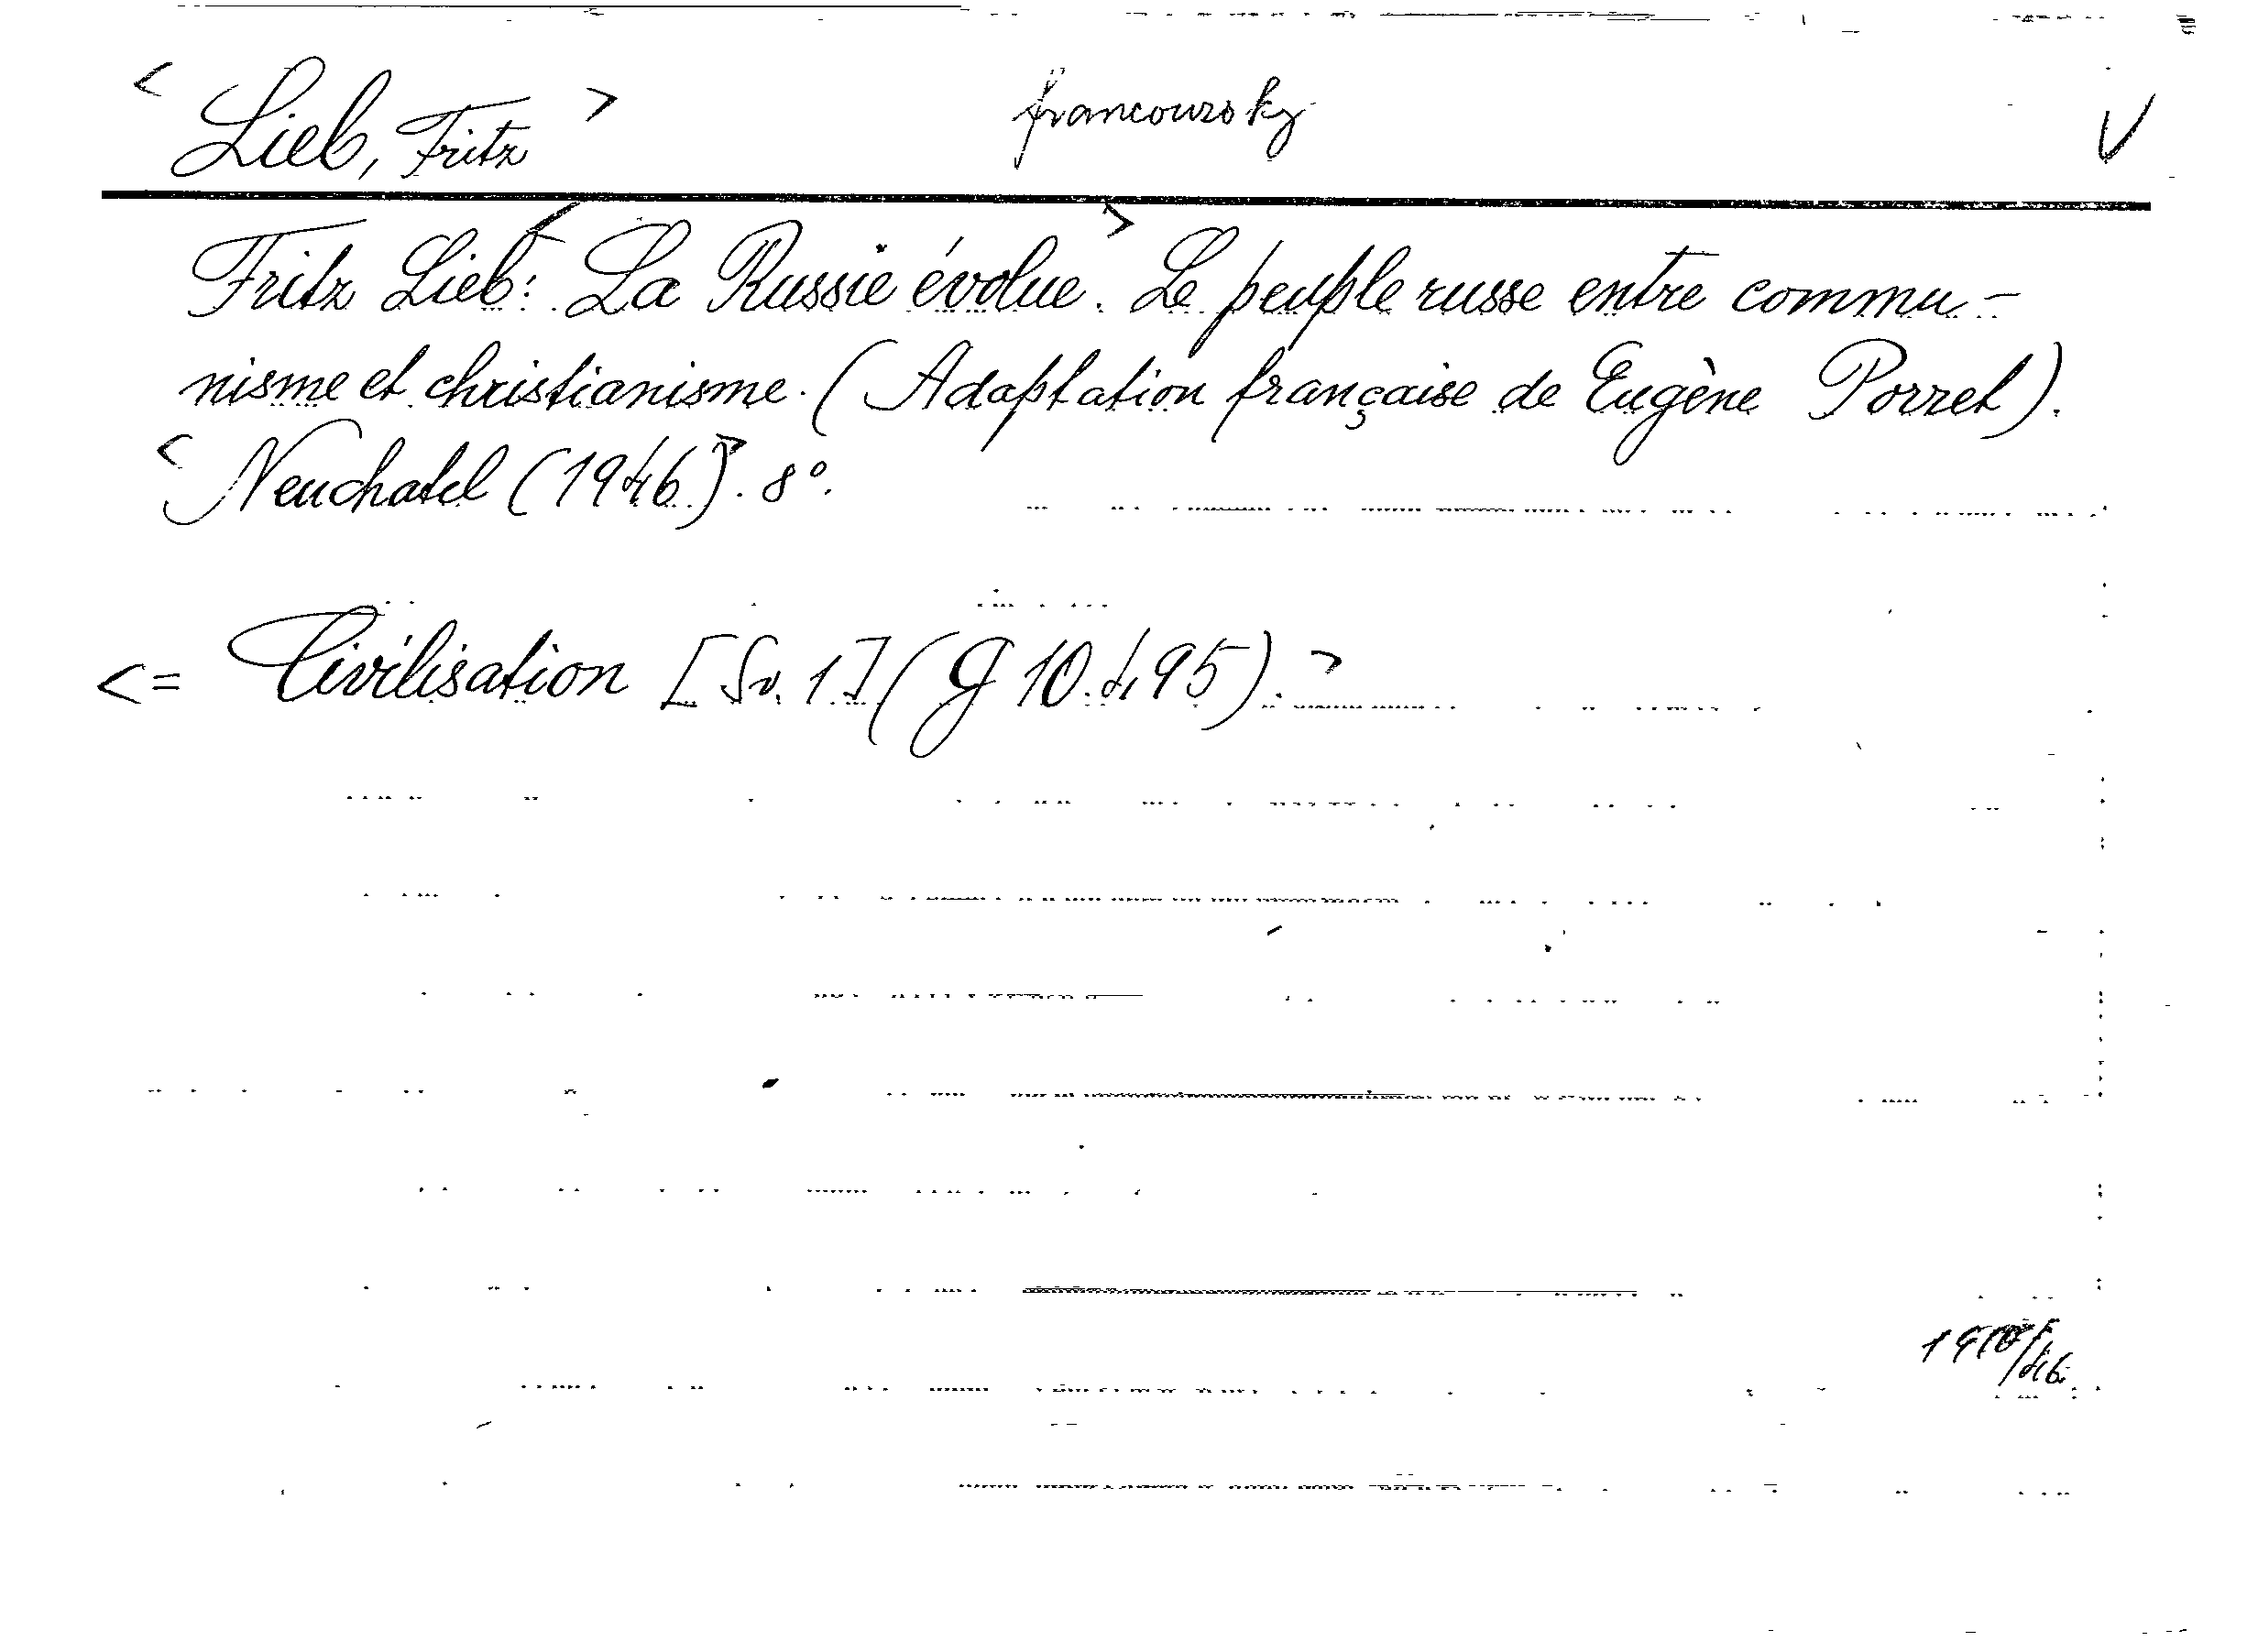 < Lieb, Fritz > francouzsky V
Fritz Lieb: < La Russie évolue. > Le peuple russe entre commu-
nisme et christianisme. (Adaptation française de Eugène Porret).
< Neuchatel (1946). > 8°.
<= Civilisation [Sv. 1] (G 10.495). >